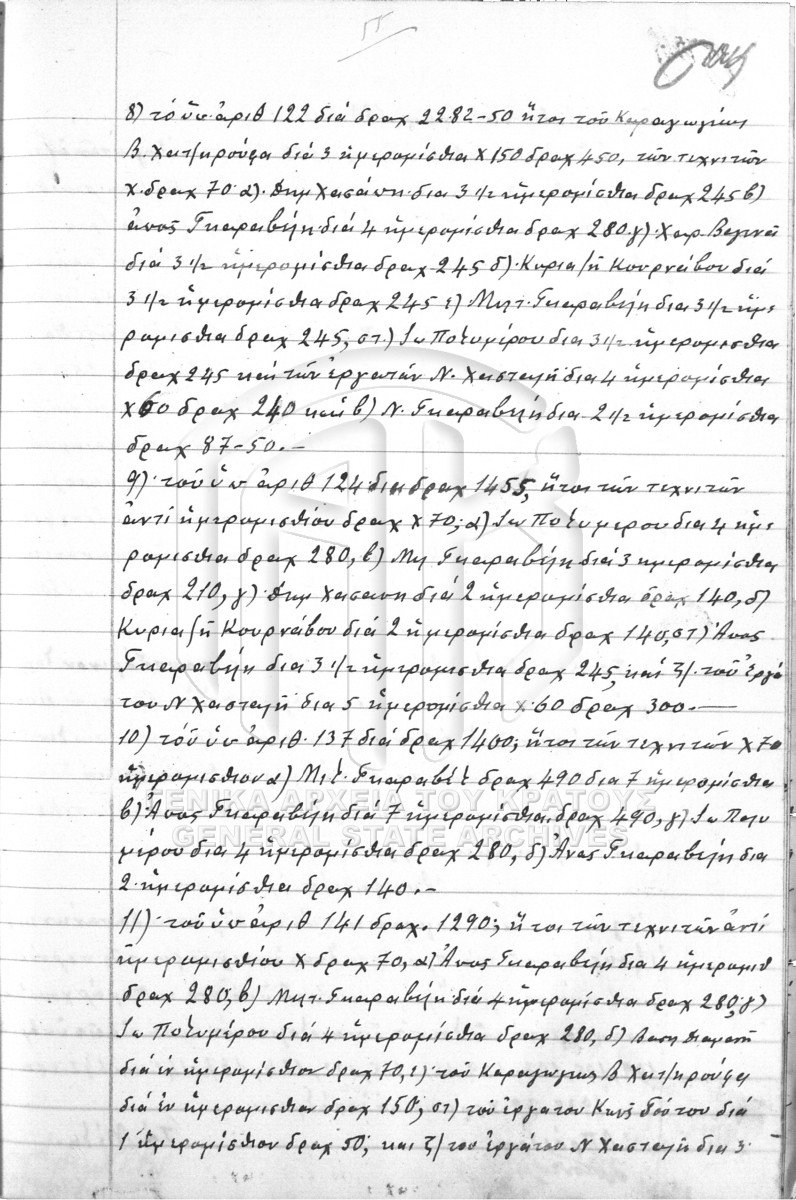 8) τό ὑπ' ἀριθ 122 διά δραχ 2282-50 ἤτοι τοῦ Καραγωγέως
Β. Χατζηρούφα διά 3 ἡμερομίσθια Χ 150 δραχ 450, τῶν τεχνιτῶν
Χ δραχ 70 α) Δημ Χασάπη διά 3 1/2 ἡμερομίσθια δραχ 245 β)
Γκαραβέλη διά 4 ἡμερομίσθια δραχ 280 γ) Χαρ
διά 3 1/2 ἡμερομίσθια δραχ 245 δ) Κυριαζῆ Κουρνάβου διά
3 1/2 ἡμερομίσθια δραχ 245 ε) Μητ. Γκαραβέλη δια 3 1/2 ἡμε-
ρομισθια δραχ 245, στ) Ιω Ποτυμίρου δια 3 1/2 ἡμερομισθια
δραχ 245 καί τῶν ἐργατῶν Ν. Χασταλῆ δια 4 ἡμερομίσθια
Χ 60 δραχ 240 καί β) Ν. Γκαραβέλη δια 2 1/2 ἡμερομίσθια
δραχ 87-50.-
9) τοῦ ὑπ' ἀριθ 124 δια δραχ 1455, ἤτοι τῶν τεχνιτῶν
ἀντί ἡμερομισθίου δραχ Χ 70, α) Ιω Ποτυμερου δια 4 ἡμε-
ρομισθια δραχ 280, β) Μη Γκαραβέλη διά 3 ημερομίσθια
δραχ 210, γ) Δημ Χασαπη διά 2 ἡμερομίσθια δραχ 140, δ)
Κυριαζῆ Κουρνάβου διά 2 ἡμερομίσθια δραχ 140, στ) Ἀνας
Γκαραβέλη δια 3 1/2 ἡμερομισθια δραχ 245, καί ζ/. τοῦ Ἐργά
του Ν Χασταλῆ δια 5 ἡμερομίσθια Χ 60 δραχ 300.-
10) τοῦ ὑπ' ἀριθ. 137 διά δραχ 1400, ἤτοι τῶν τεχνιτῶν Χ 70
ἡμερομισθιον α) Μητ. Γκαραβέλη δραχ 490 δια 7 ἡμερομίσθια
β) Ἀνας Γκαραβέλη διά 7 ἡμερομίσθια δραχ 490, γ) Ιω Ποτυ
μίρου δια 4 ἡμερομίσθια δραχ 280, δ) Ἀνας Γκαραβέλη δια
2 ἡμερομίσθια δραχ 140.-
11) τοῦ ὑπ' ἀριθ 141 δραχ. 1290, ἤτοι τῶν τεχνιτῶν ἀντί
ἡμερομισθίου Χ δραχ 70, α) Ἀνας Γκαραβέλη δια 4 ἡμερομισθ
δραχ 280, β) Μητ. Γκαραβέλη διά 4 ἡμερομίσθια δραχ 280 γ)
Ιω Ποτυμίρου διά 4 ἡμερομίσθια δραχ 280, δ) Βασ
διά ἕν ἡμερομίσθιον δραχ 70, ε) τοῦ Καραγωγέως Β Χατζηρούφα
διά ἕν ἡμερομισθιον δραχ 150, στ) τοῦ ἐργατου Κων διά
1 ἡμερομίσθιον δραχ 50, και ζ/ του ἐργάτου Ν Χασταλῆ δια 3
ΓΕΝΙΚΑ ΑΡΧΕΙΑ ΤΟΥ ΚΡΑΤΟΥΣ
GENERAL STATE ARCHIVES